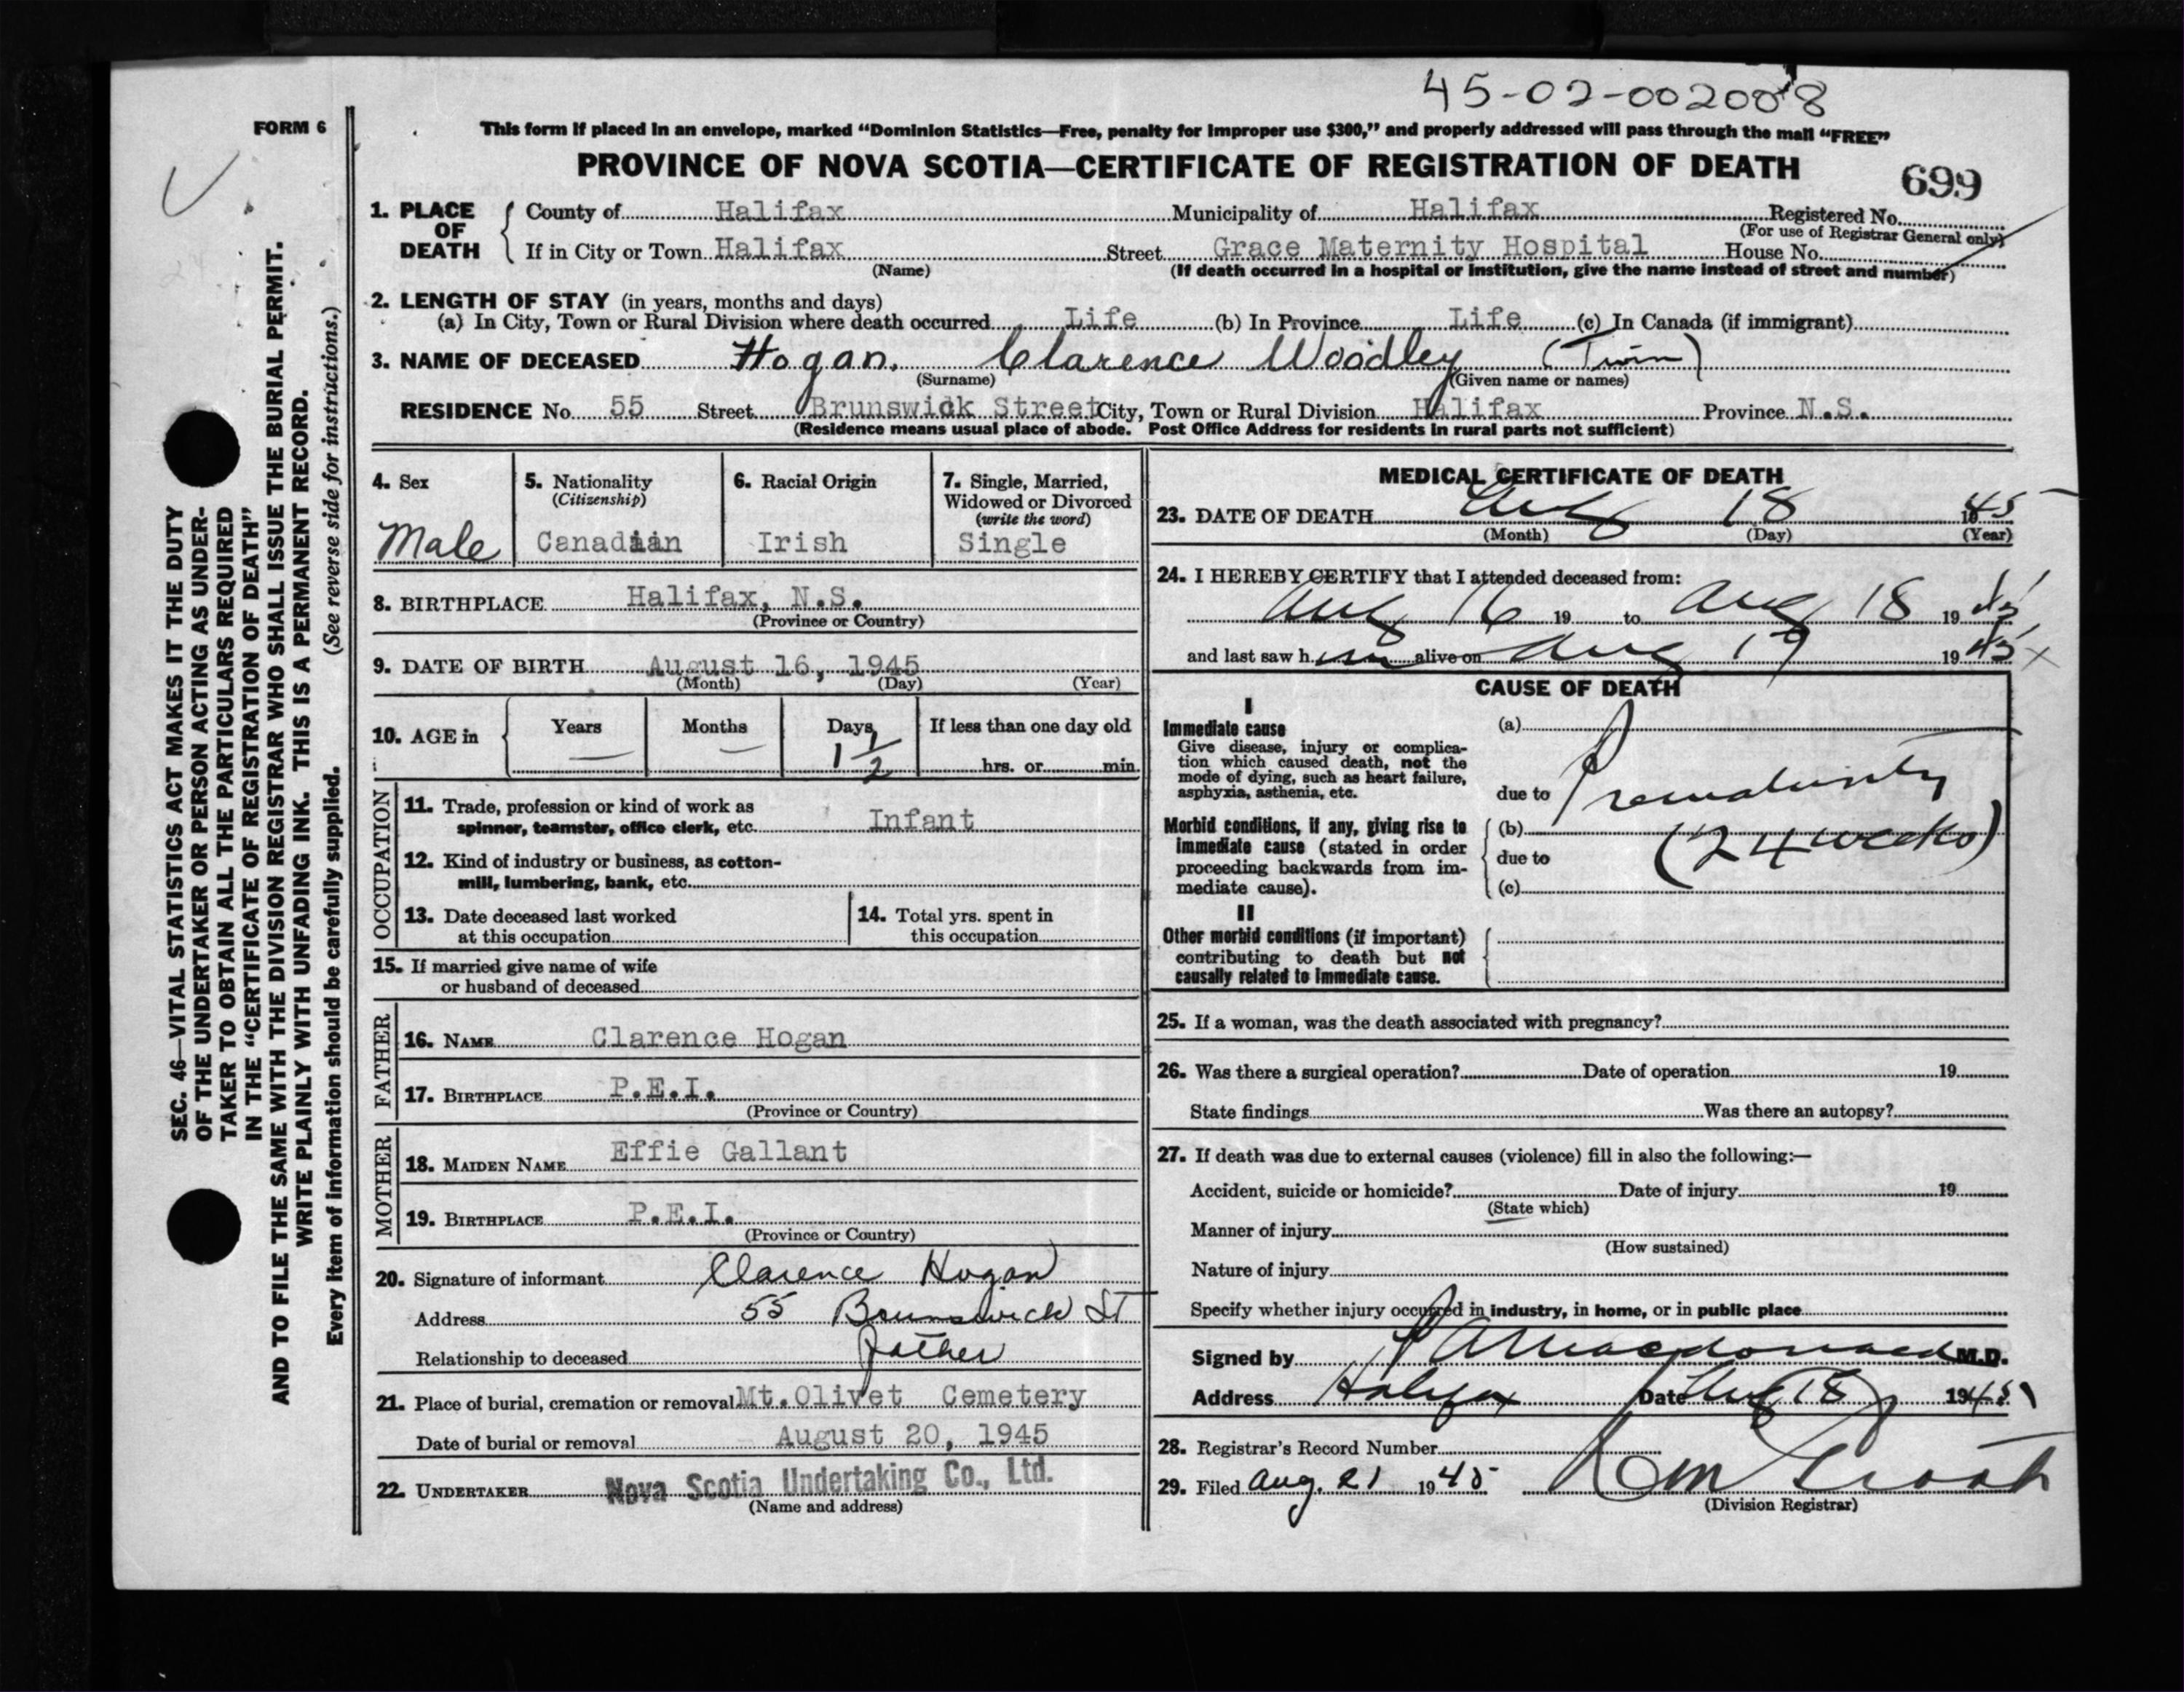 45-02-002008
FORM 6
This form if placed in an envelope, marked “Dominion Statistics—Free, penalty for improper use $300,” and properly addressed will pass through the mail “FREE”
PROVINCE OF NOVA SCOTIA—CERTIFICATE OF REGISTRATION OF DEATH
699
1. PLACE OF DEATH
County of Halifax Municipality of Halifax Registered No.
(For use of Registrar General only)
If in City or Town Halifax Street Grace Maternity Hospital House No.
(Name) (If death occurred in a hospital or institution, give the name instead of street and number)
2. LENGTH OF STAY (in years, months and days)
(a) In City, Town or Rural Division where death occurred Life (b) In Province Life (c) In Canada (if immigrant)
3. NAME OF DECEASED Hogan, Clarence Woodley (Twin)
(Surname) (Given name or names)
RESIDENCE No. 55 Street Brunswick Street City, Town or Rural Division Halifax Province N.S.
(Residence means usual place of abode. Post Office Address for residents in rural parts not sufficient)
4. Sex
Male
5. Nationality
(Citizenship)
Canadian
6. Racial Origin
Irish
7. Single, Married,
Widowed or Divorced
(write the word)
Single
8. BIRTHPLACE Halifax, N.S.
(Province or Country)
9. DATE OF BIRTH August 16, 1945
(Month) (Day) (Year)
10. AGE in
Years —
Months —
Days 1 1/2
If less than one day old
hrs. or min.
OCCUPATION
11. Trade, profession or kind of work as
spinner, teamster, office clerk, etc. Infant
12. Kind of industry or business, as cotton-
mill, lumbering, bank, etc.
13. Date deceased last worked
at this occupation
14. Total yrs. spent in
this occupation
15. If married give name of wife
or husband of deceased
FATHER
16. NAME Clarence Hogan
17. BIRTHPLACE P.E.I.
(Province or Country)
MOTHER
18. MAIDEN NAME Effie Gallant
19. BIRTHPLACE P.E.I.
(Province or Country)
20. Signature of informant Clarence Hogan
Address 55 Brunswick St
Relationship to deceased father
21. Place of burial, cremation or removal Mt. Olivet Cemetery
Date of burial or removal August 20, 1945
22. UNDERTAKER Nova Scotia Undertaking Co., Ltd.
(Name and address)
MEDICAL CERTIFICATE OF DEATH
23. DATE OF DEATH Aug 18 1945
(Month) (Day) (Year)
24. I HEREBY CERTIFY that I attended deceased from:
Aug 16 19 to Aug 18 19 45
and last saw h im alive on Aug 17 19 45 x
CAUSE OF DEATH
I
Immediate cause
Give disease, injury or complica-
tion which caused death, not the
mode of dying, such as heart failure,
asphyxia, asthenia, etc.
(a)
due to Prematurity
Morbid conditions, if any, giving rise to
immediate cause (stated in order
proceeding backwards from im-
mediate cause).
(b) (24 weeks)
due to
(c)
II
Other morbid conditions (if important)
contributing to death but not
causally related to immediate cause.
25. If a woman, was the death associated with pregnancy?
26. Was there a surgical operation? Date of operation 19
State findings Was there an autopsy?
27. If death was due to external causes (violence) fill in also the following:—
Accident, suicide or homicide? Date of injury 19
(State which)
Manner of injury
(How sustained)
Nature of injury
Specify whether injury occurred in industry, in home, or in public place
Signed by Macdonald M.D.
Address Halifax Date Aug 18 1945
28. Registrar's Record Number
29. Filed Aug. 21 1945
(Division Registrar)
SEC. 46—VITAL STATISTICS ACT MAKES IT THE DUTY
OF THE UNDERTAKER OR PERSON ACTING AS UNDER-
TAKER TO OBTAIN ALL THE PARTICULARS REQUIRED
IN THE “CERTIFICATE OF REGISTRATION OF DEATH”
AND TO FILE THE SAME WITH THE DIVISION REGISTRAR WHO SHALL ISSUE THE BURIAL PERMIT.
WRITE PLAINLY WITH UNFADING INK. THIS IS A PERMANENT RECORD.
Every item of information should be carefully supplied. (See reverse side for instructions.)